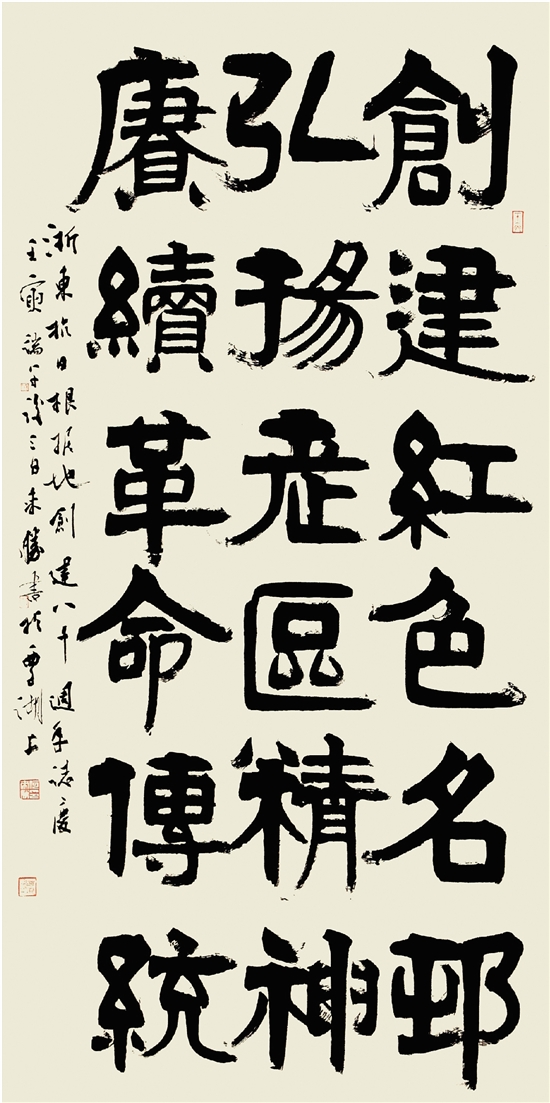 創建紅色名邨
弘揚老區精神
賡續革命傳統
浙東抗日根据地創建八十週年誌慶
壬寅端午後三日來勝書於湖上